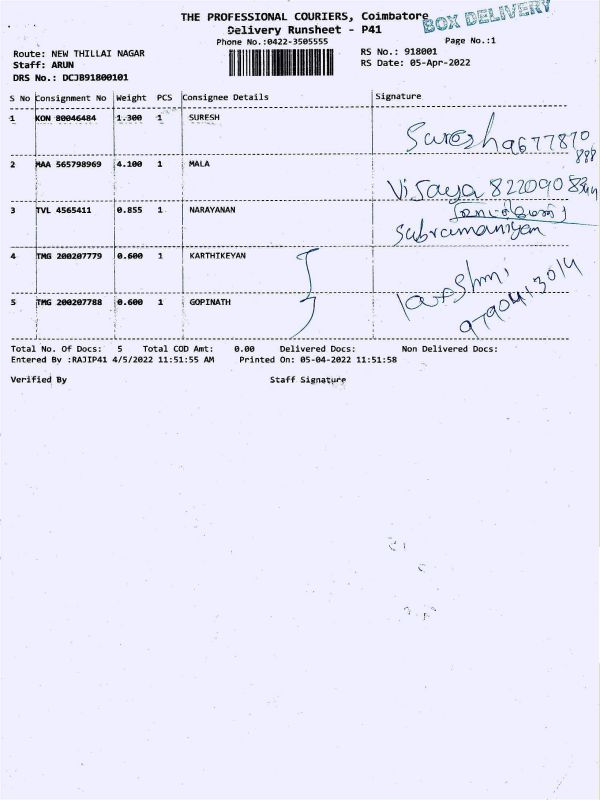 THE PROFESSIONAL COURIERS, Coimbatore
BOX DELIVERY
Delivery Runsheet - P41
Phone No.:0422-3505555
Page No.:1
Route: NEW THILLAI NAGAR
RS No.: 918001
Staff: ARUN
RS Date: 05-Apr-2022
DRS No.: DCJB91800101
S No Consignment No Weight PCS Consignee Details Signature
1 KON 80046484 1.300 1 SURESH
Suresh 9677870
888
2 MAA 565798969 4.100 1 MALA
Vijaya
3 TVL 4565411 0.855 1 NARAYANAN
Subramaniyan
4 TMG 200207779 0.600 1 KARTHIKEYAN
5 TMG 200207788 0.600 1 GOPINATH
Total No. Of Docs: 5 Total COD Amt: 0.00 Delivered Docs: Non Delivered Docs:
Entered By :RAJIP41 4/5/2022 11:51:55 AM Printed On: 05-04-2022 11:51:58
Verified By Staff Signature